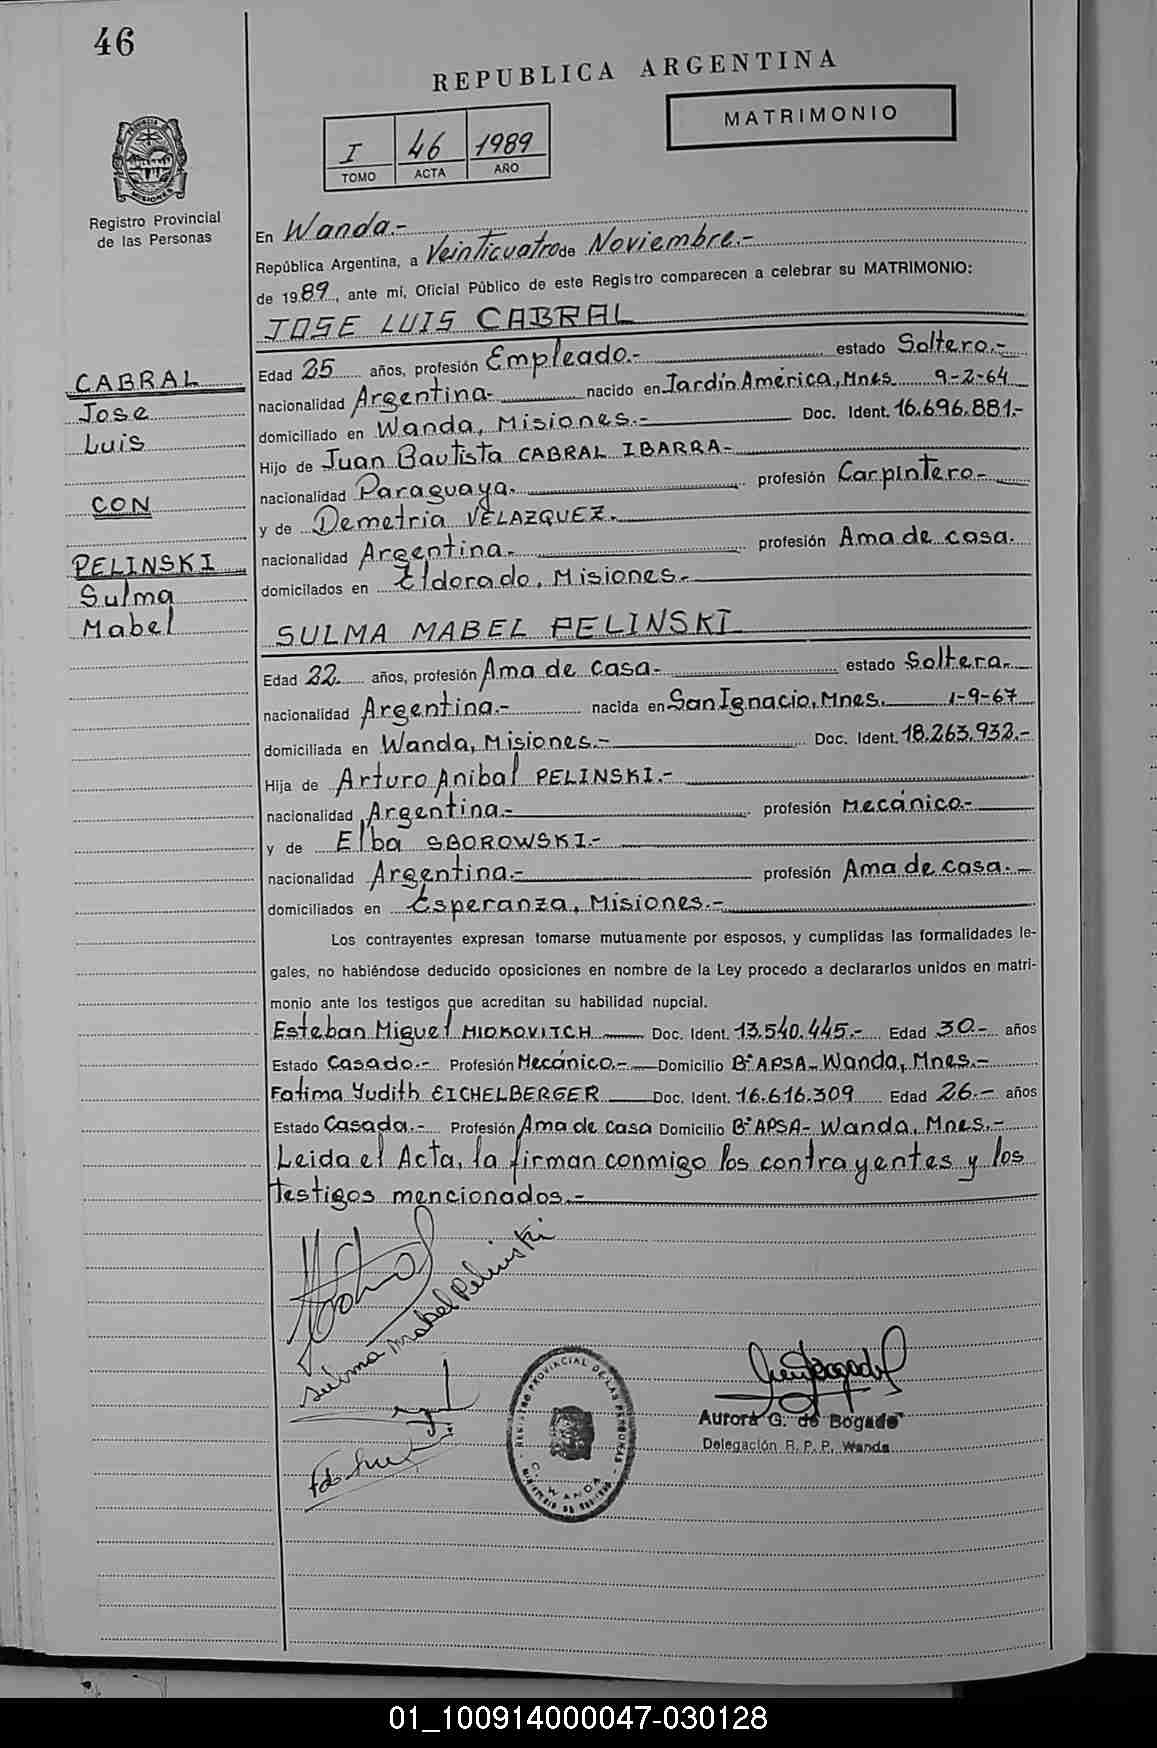 46
REPUBLICA ARGENTINA
MATRIMONIO
I 46 1989
TOMO ACTA AÑO
PROVINCIA MISIONES
Registro Provincial
de las Personas
En Wanda.-
República Argentina, a Veinticuatro de Noviembre.-
de 1989, ante mí, Oficial Público de este Registro comparecen a celebrar su MATRIMONIO:
JOSE LUIS CABRAL
CABRAL
Jose
Luis
CON
PELINSKI
Sulma
Mabel
Edad 25 años, profesión Empleado.- estado Soltero.-
nacionalidad Argentina- nacido en Jardín America, Mnes. 9-2-64
domiciliado en Wanda, Misiones.- Doc. Ident. 16.696.881.-
Hijo de Juan Bautista CABRAL IBARRA-
nacionalidad Paraguaya. profesión Carpintero-
y de Demetria VELAZQUEZ.
nacionalidad Argentina.- profesión Ama de casa.
domicilados en Eldorado, Misiones.-
SULMA MABEL PELINSKI
Edad 22. años, profesión Ama de casa- estado Soltera.
nacionalidad Argentina.- nacida en San Ignacio, Mnes. 1-9-67
domiciliada en Wanda, Misiones.- Doc. Ident. 18.263.932.-
Hija de Arturo Anibal PELINSKI.-
nacionalidad Argentina.- profesión Mecánico.-
y de Elba SBOROWSKI.-
nacionalidad Argentina.- profesión Ama de casa.-
domiciliados en Esperanza, Misiones.-
Los contrayentes expresan tomarse mutuamente por esposos, y cumplidas las formalidades le-
gales, no habiéndose deducido oposiciones en nombre de la Ley procedo a declararlos unidos en matri-
monio ante los testigos que acreditan su habilidad nupcial.
Esteban Miguel MIOKOVITCH Doc. Ident. 13.540.445.- Edad 30.- años
Estado Casado.- Profesión Mecánico.- Domicilio Bº APSA- Wanda, Mnes.-
Fatima Yudith EICHELBERGER Doc. Ident. 16.616.309 Edad 26.- años
Estado Casada.- Profesión Ama de casa Domicilio Bº APSA- Wanda, Mnes.-
Leida el Acta, la firman conmigo los contrayentes y los
testigos mencionados.-
Sulma Mabel Pelinski
REGISTRO PROVINCIAL DE LAS PERSONAS
WANDA
Aurora G. de Bogado
Delegación R. P. P. Wanda
01_100914000047-030128